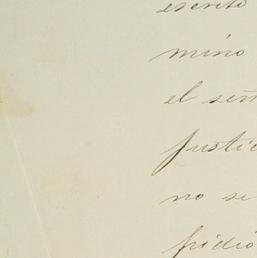 escrito
mino
el señ
Justic
no se
pidió